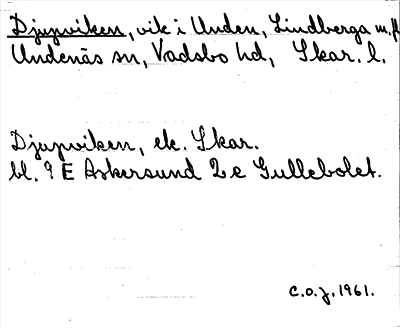 Djupviken, vik i Unden, Lindberga m.fl.
Undenäs sn, Vadsbo hd, Skar. l.
Djupviken, ek. Skar.
bl. 9 E Askersund 2 c Gullebolet.
C.O.J. 1961.